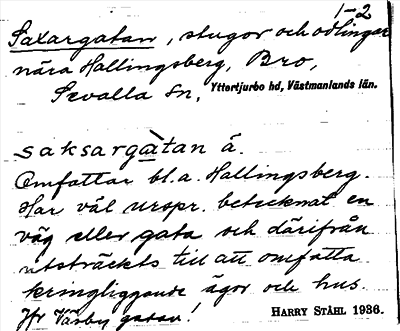 1-2
Saxargatan, stugor och odlingar
nära Hallingsberg, Bro,
Sevalla sn, Yttertjurbo hd, Västmanlands län.
saksargàtan á.
Omfattar bl.a. Hallingsberg.
Har väl urspr. betecknat en
väg eller gata och därifrån
utsträckts till att omfatta
kringliggande ägor och hus.
Jfr Väsby gatan!
HARRY STÅHL 1936.